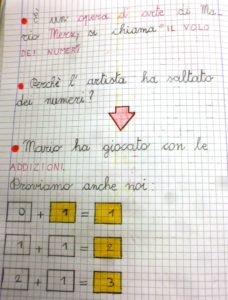 È un opera d'arte di Ma-
rio Merz, si chiama "IL VOLO
DEI NUMERI"
Perchè l'artista ha saltato
dei numeri?
Mario ha giocato con le
ADDIZIONI.
Proviamo anche noi:
0 + 1 = 1
1 + 1 = 2
2 + 1 = 3